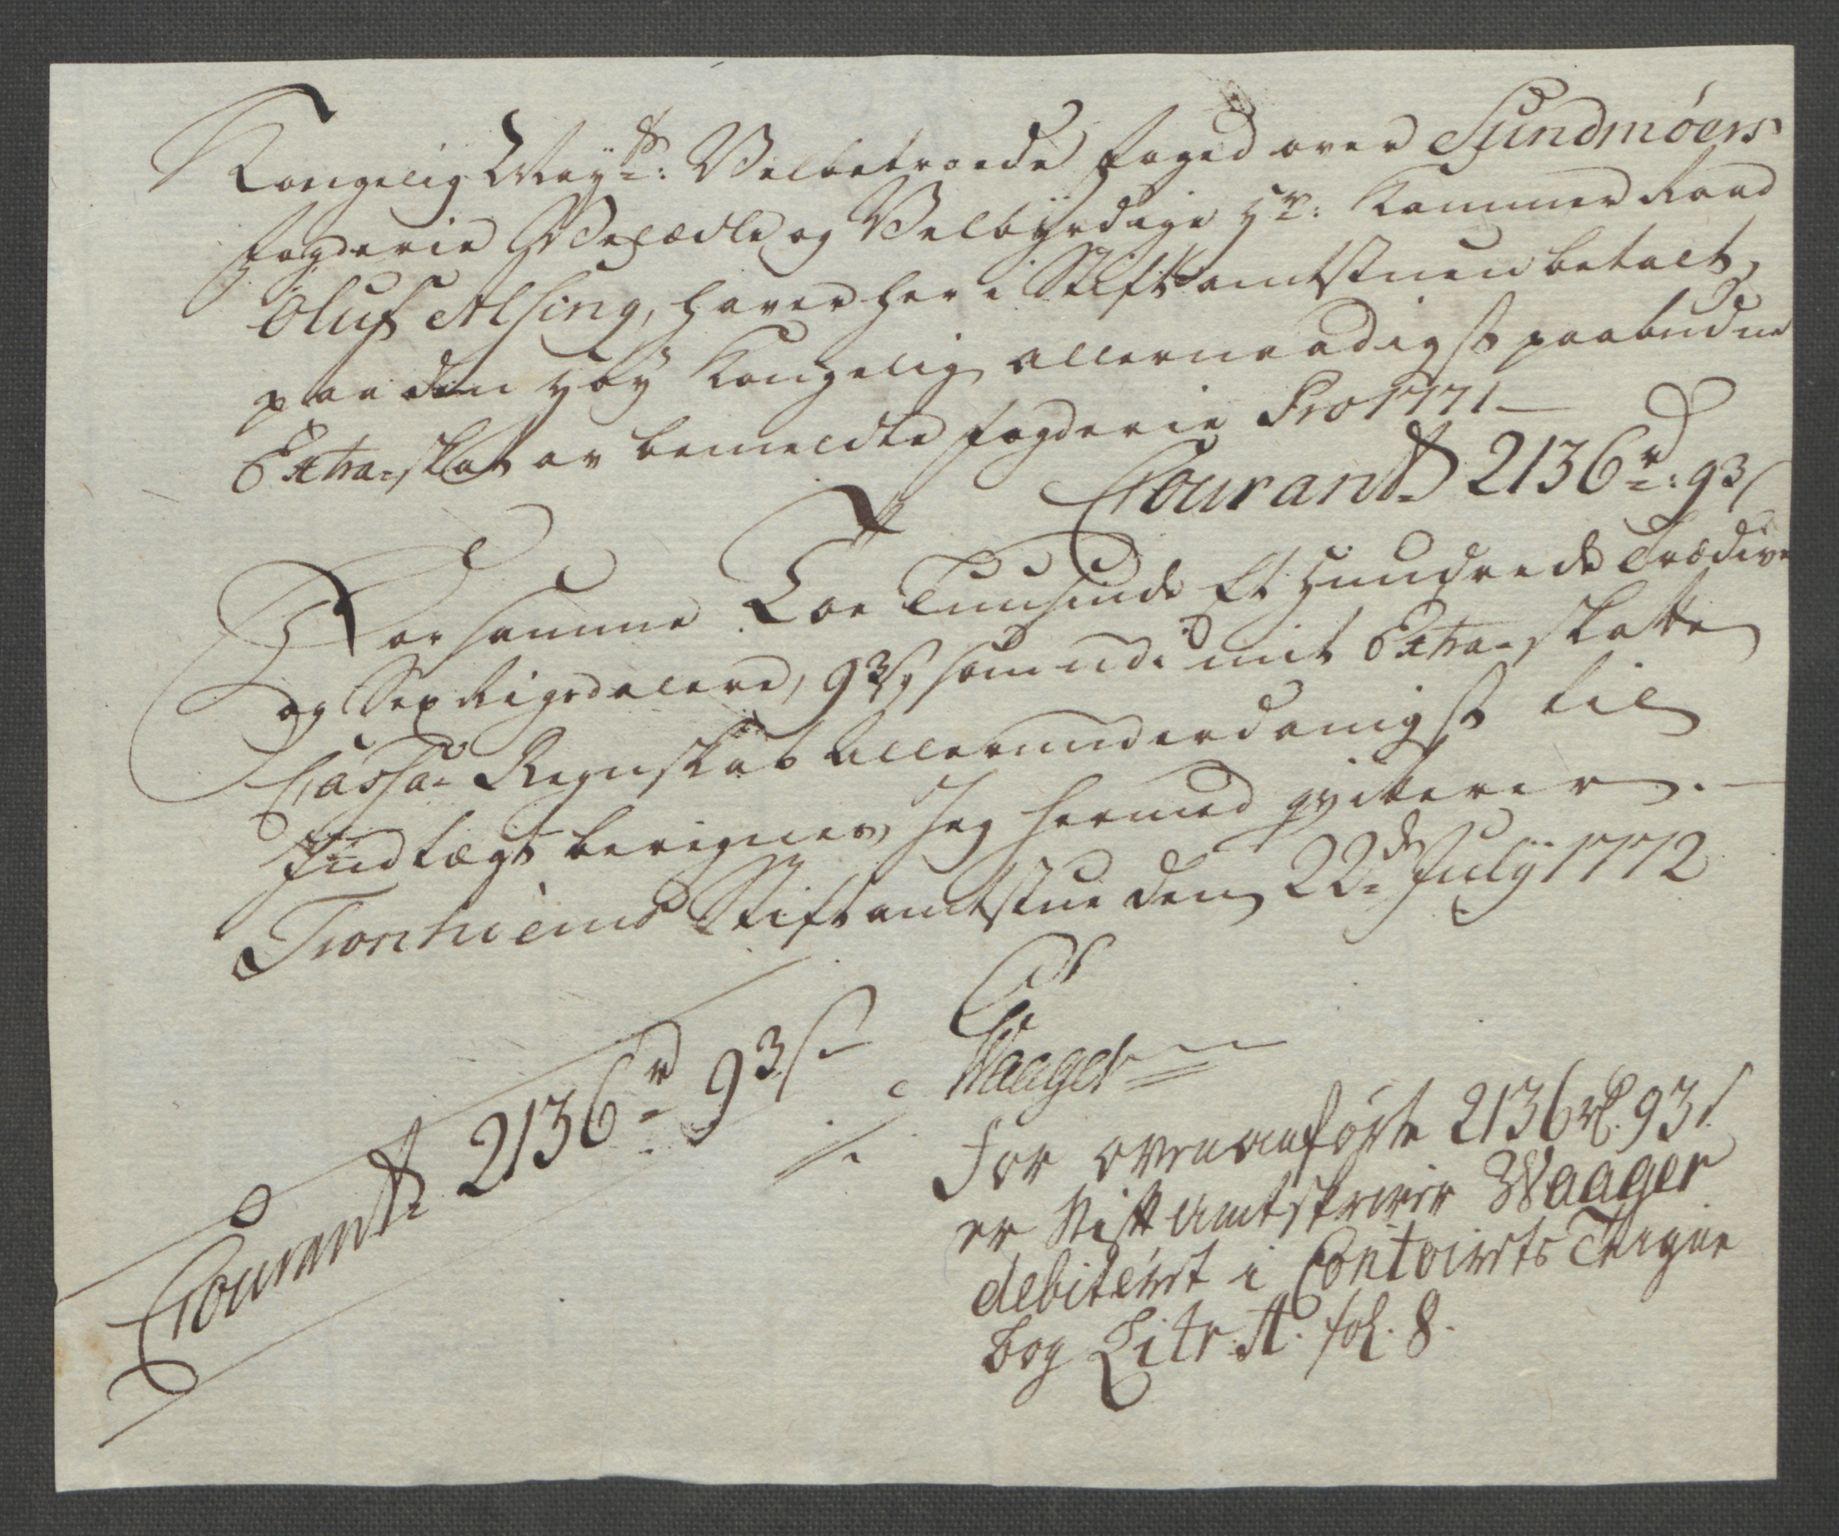 Kongelig Mayts: Velbetroede foged over Sundmöers
fogderie Velædle og Velbyrdige Hr: Kammer Raad
Oluf Alsing, haver her i Stiftamtstuen betalt,
paa den høy Kongelig allernaadigst paabudne
Extra-skat av bemeldte fogderie Pro 1771 —
Courant 2136 rd: 93 s
For samme Toe Tuusinde Et Hundrede Trædive
og Sex Rigsdalere, 93 s, som udi mit Extra-skatte
Cassa-Regnskab allerunderdanigst til
Indtægt beregnes, Jeg hermed qviterer. —
Tronhiems Stiftamtstue den 22de Julij 1772
Waager
Courant 2136 rd 93 s
For ovenanførte 2136 rd. 93 s.
er Stiftamtskriver Waager
debiteret i Contoirets
bog Litr. A. fol. 8.